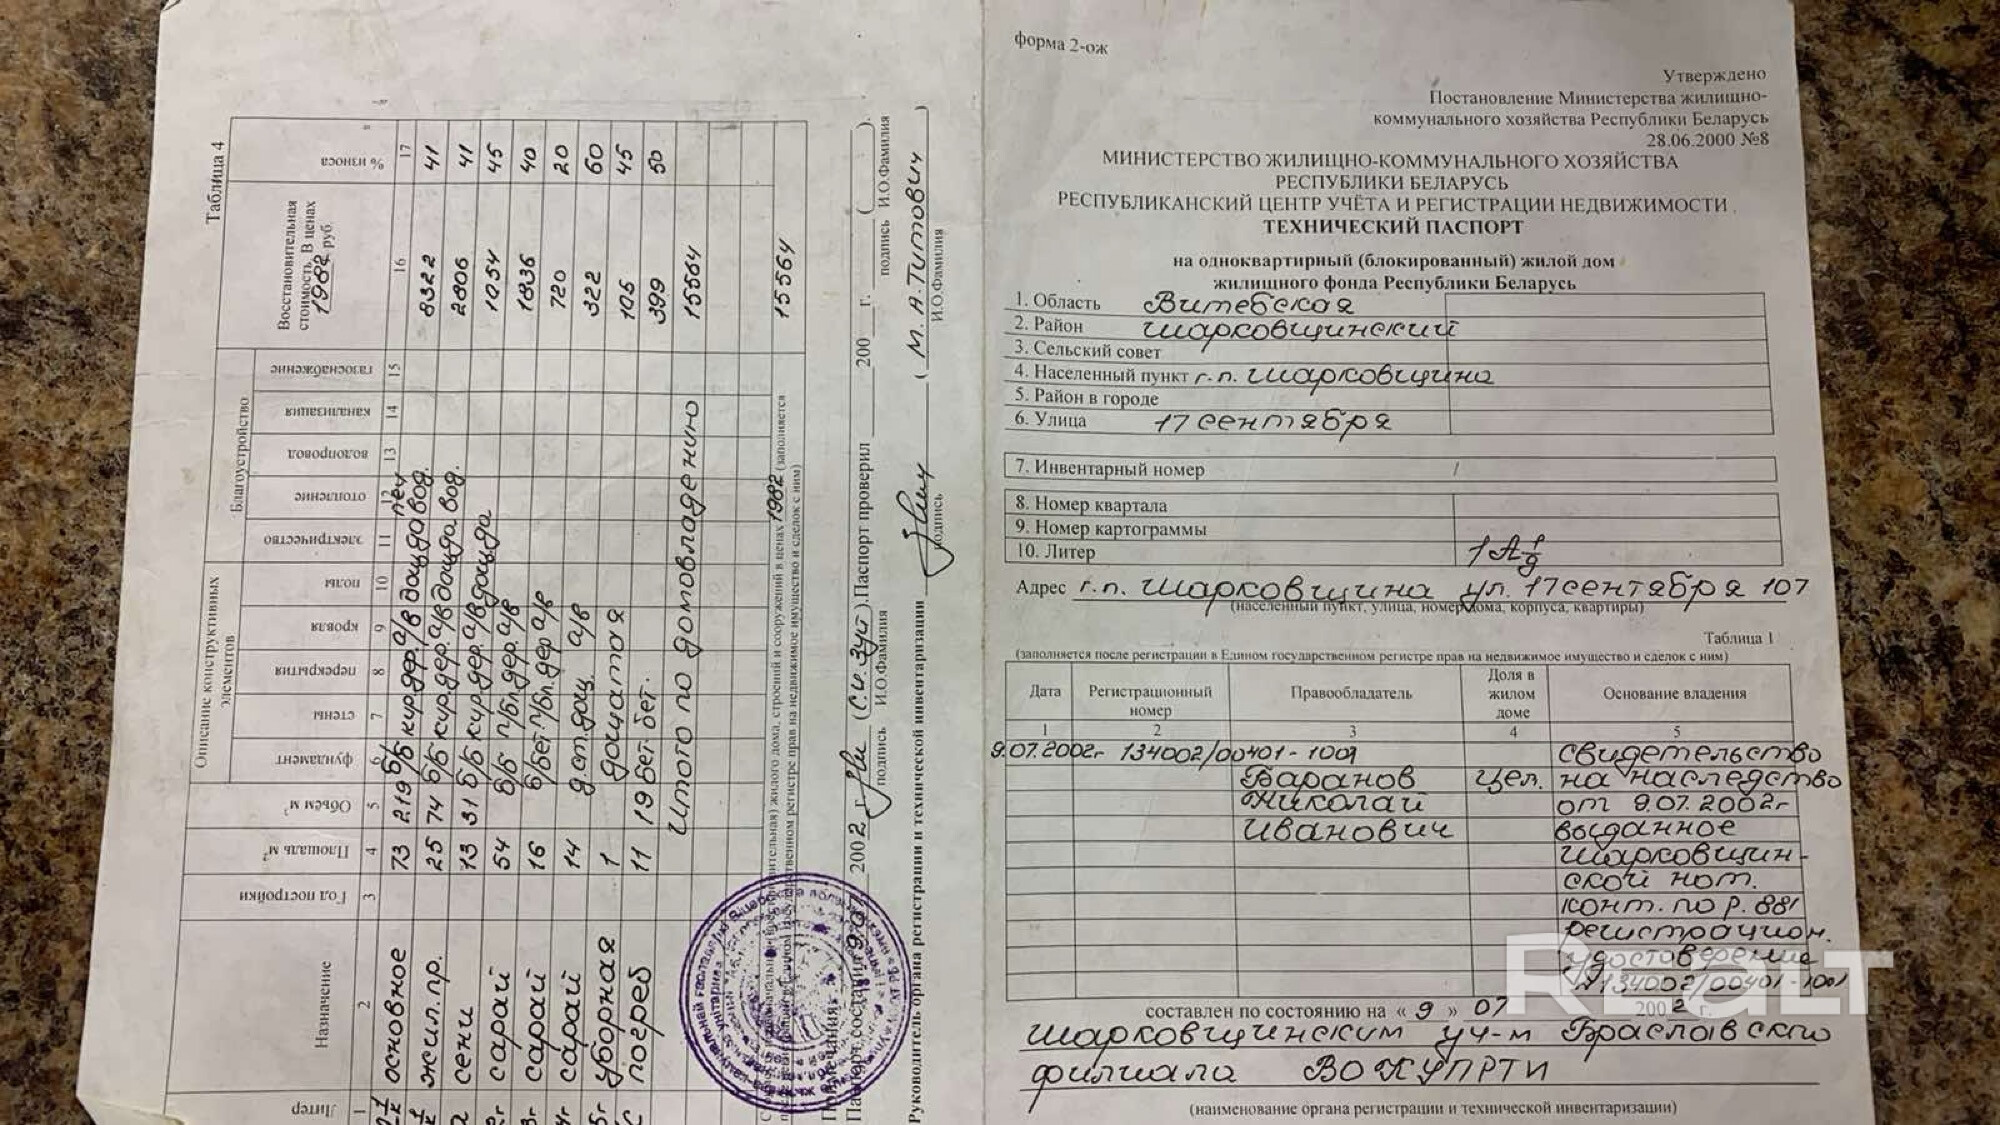 Таблица 4
Литер
Назначение
Год постройки
Площадь м²
Объем м³
Описание конструктивных элементов
фундамент
стены
перекрытия
кровля
полы
Благоустройство
электричество
отопление
водопровод
канализация
газоснабжение
Восстановительная стоимость. В ценах 1982 руб.
% износа
1 2 3 4 5 6 7 8 9 10 11 12 13 14 15 16 17
основное 73 219 б/б кир. дер. а/в доща вод. печ 8322 41
жил.пр. 25 74 б/б кир. дер. а/в доща вод. 2806 41
сени 13 31 б/б кир. дер. а/в доща 1054 45
сарай 54 б/б п/бл. дер. а/в 1836 40
сарай 16 б/бет п/бл. дер. а/в 720 20
сарай 14 д.ст. дощ. а/в 322 60
уборная 1 дощатая 105 45
погреб 11 19 бет. бет. 399 50
Итого по домовладению 15564
1982 (заполняется
15564
Паспорт составил 9.07 2002 г. (С.И. Зуй). Паспорт проверил 200 г. ( ).
подпись И.О.Фамилия подпись И.О.Фамилия
Руководитель органа регистрации и технической инвентаризации ( М. А. Титович )
подпись И.О.Фамилия
форма 2-ож
Утверждено
Постановление Министерства жилищно-
коммунального хозяйства Республики Беларусь
28.06.2000 №8
МИНИСТЕРСТВО ЖИЛИЩНО-КОММУНАЛЬНОГО ХОЗЯЙСТВА
РЕСПУБЛИКИ БЕЛАРУСЬ
РЕСПУБЛИКАНСКИЙ ЦЕНТР УЧЁТА И РЕГИСТРАЦИИ НЕДВИЖИМОСТИ
ТЕХНИЧЕСКИЙ ПАСПОРТ
на одноквартирный (блокированный) жилой дом
жилищного фонда Республики Беларусь
1. Область Витебская
2. Район Шарковщинский
3. Сельский совет
4. Населенный пункт г.п. Шарковщина
5. Район в городе
6. Улица 17 сентября
7. Инвентарный номер /
8. Номер квартала
9. Номер картограммы
10. Литер 1А
Адрес г.п. Шарковщина ул. 17 сентября 107
(населенный пункт, улица, номер дома, корпуса, квартиры)
Таблица 1
(заполняется после регистрации в Едином государственном регистре прав на недвижимое имущество и сделок с ним)
Дата Регистрационный номер Правообладатель Доля в жилом доме Основание владения
1 2 3 4 5
9.07.2002г 134002/00401-1001 свидетельство
Баранов цел. на наследство
Николай от 9.07.2002г
Иванович выданное
Шарковщин-
ской нот.
конт. по р. 881
регистрацион.
удостоверение
134002/00401-1001
составлен по состоянию на « 9 » 07 2002 г.
Шарковщинским уч-м Браславского
филиала ВОКУПРТИ
(наименование органа регистрации и технической инвентаризации)
REALT